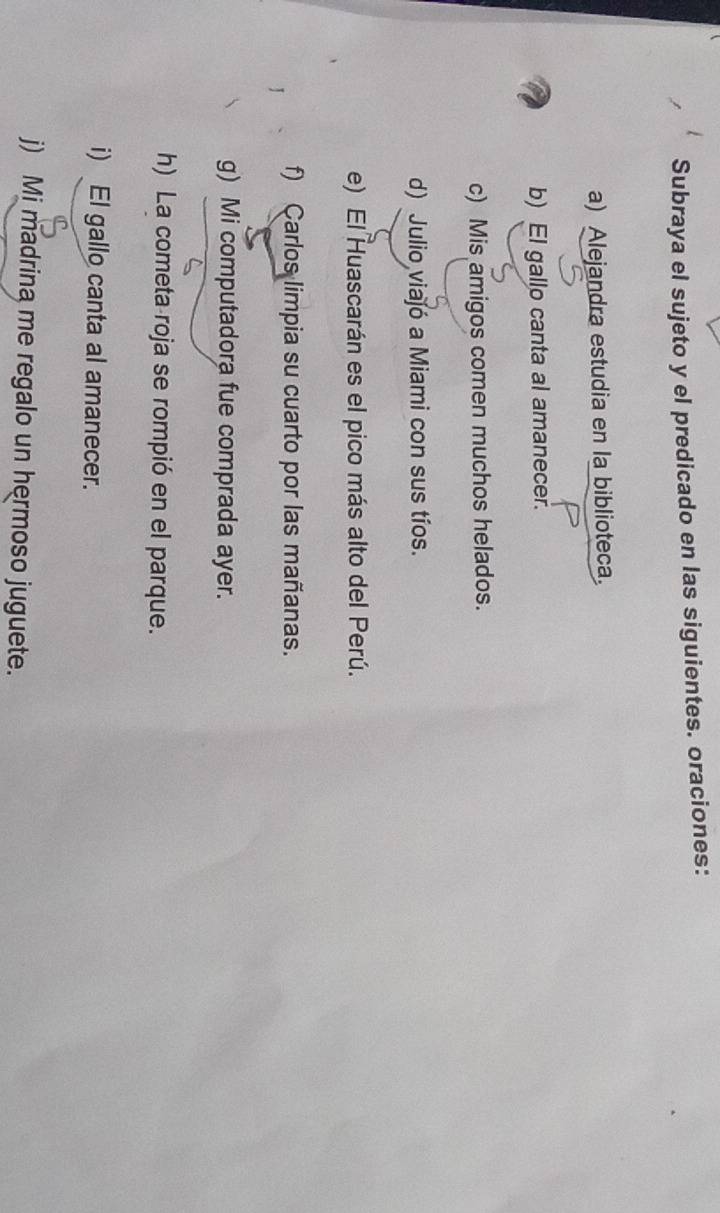 Subraya el sujeto y el predicado en las siguientes. oraciones:
a) Alejandra estudia en la biblioteca.
S P
b) El gallo canta al amanecer.
S
c) Mis amigos comen muchos helados.
S
d) Julio viajó a Miami con sus tíos.
S
e) El Huascarán es el pico más alto del Perú.
S
f) Carlos limpia su cuarto por las mañanas.
S
g) Mi computadora fue comprada ayer.
S
h) La cometa roja se rompió en el parque.
i) El gallo canta al amanecer.
j) Mi madrina me regalo un hermoso juguete.
S